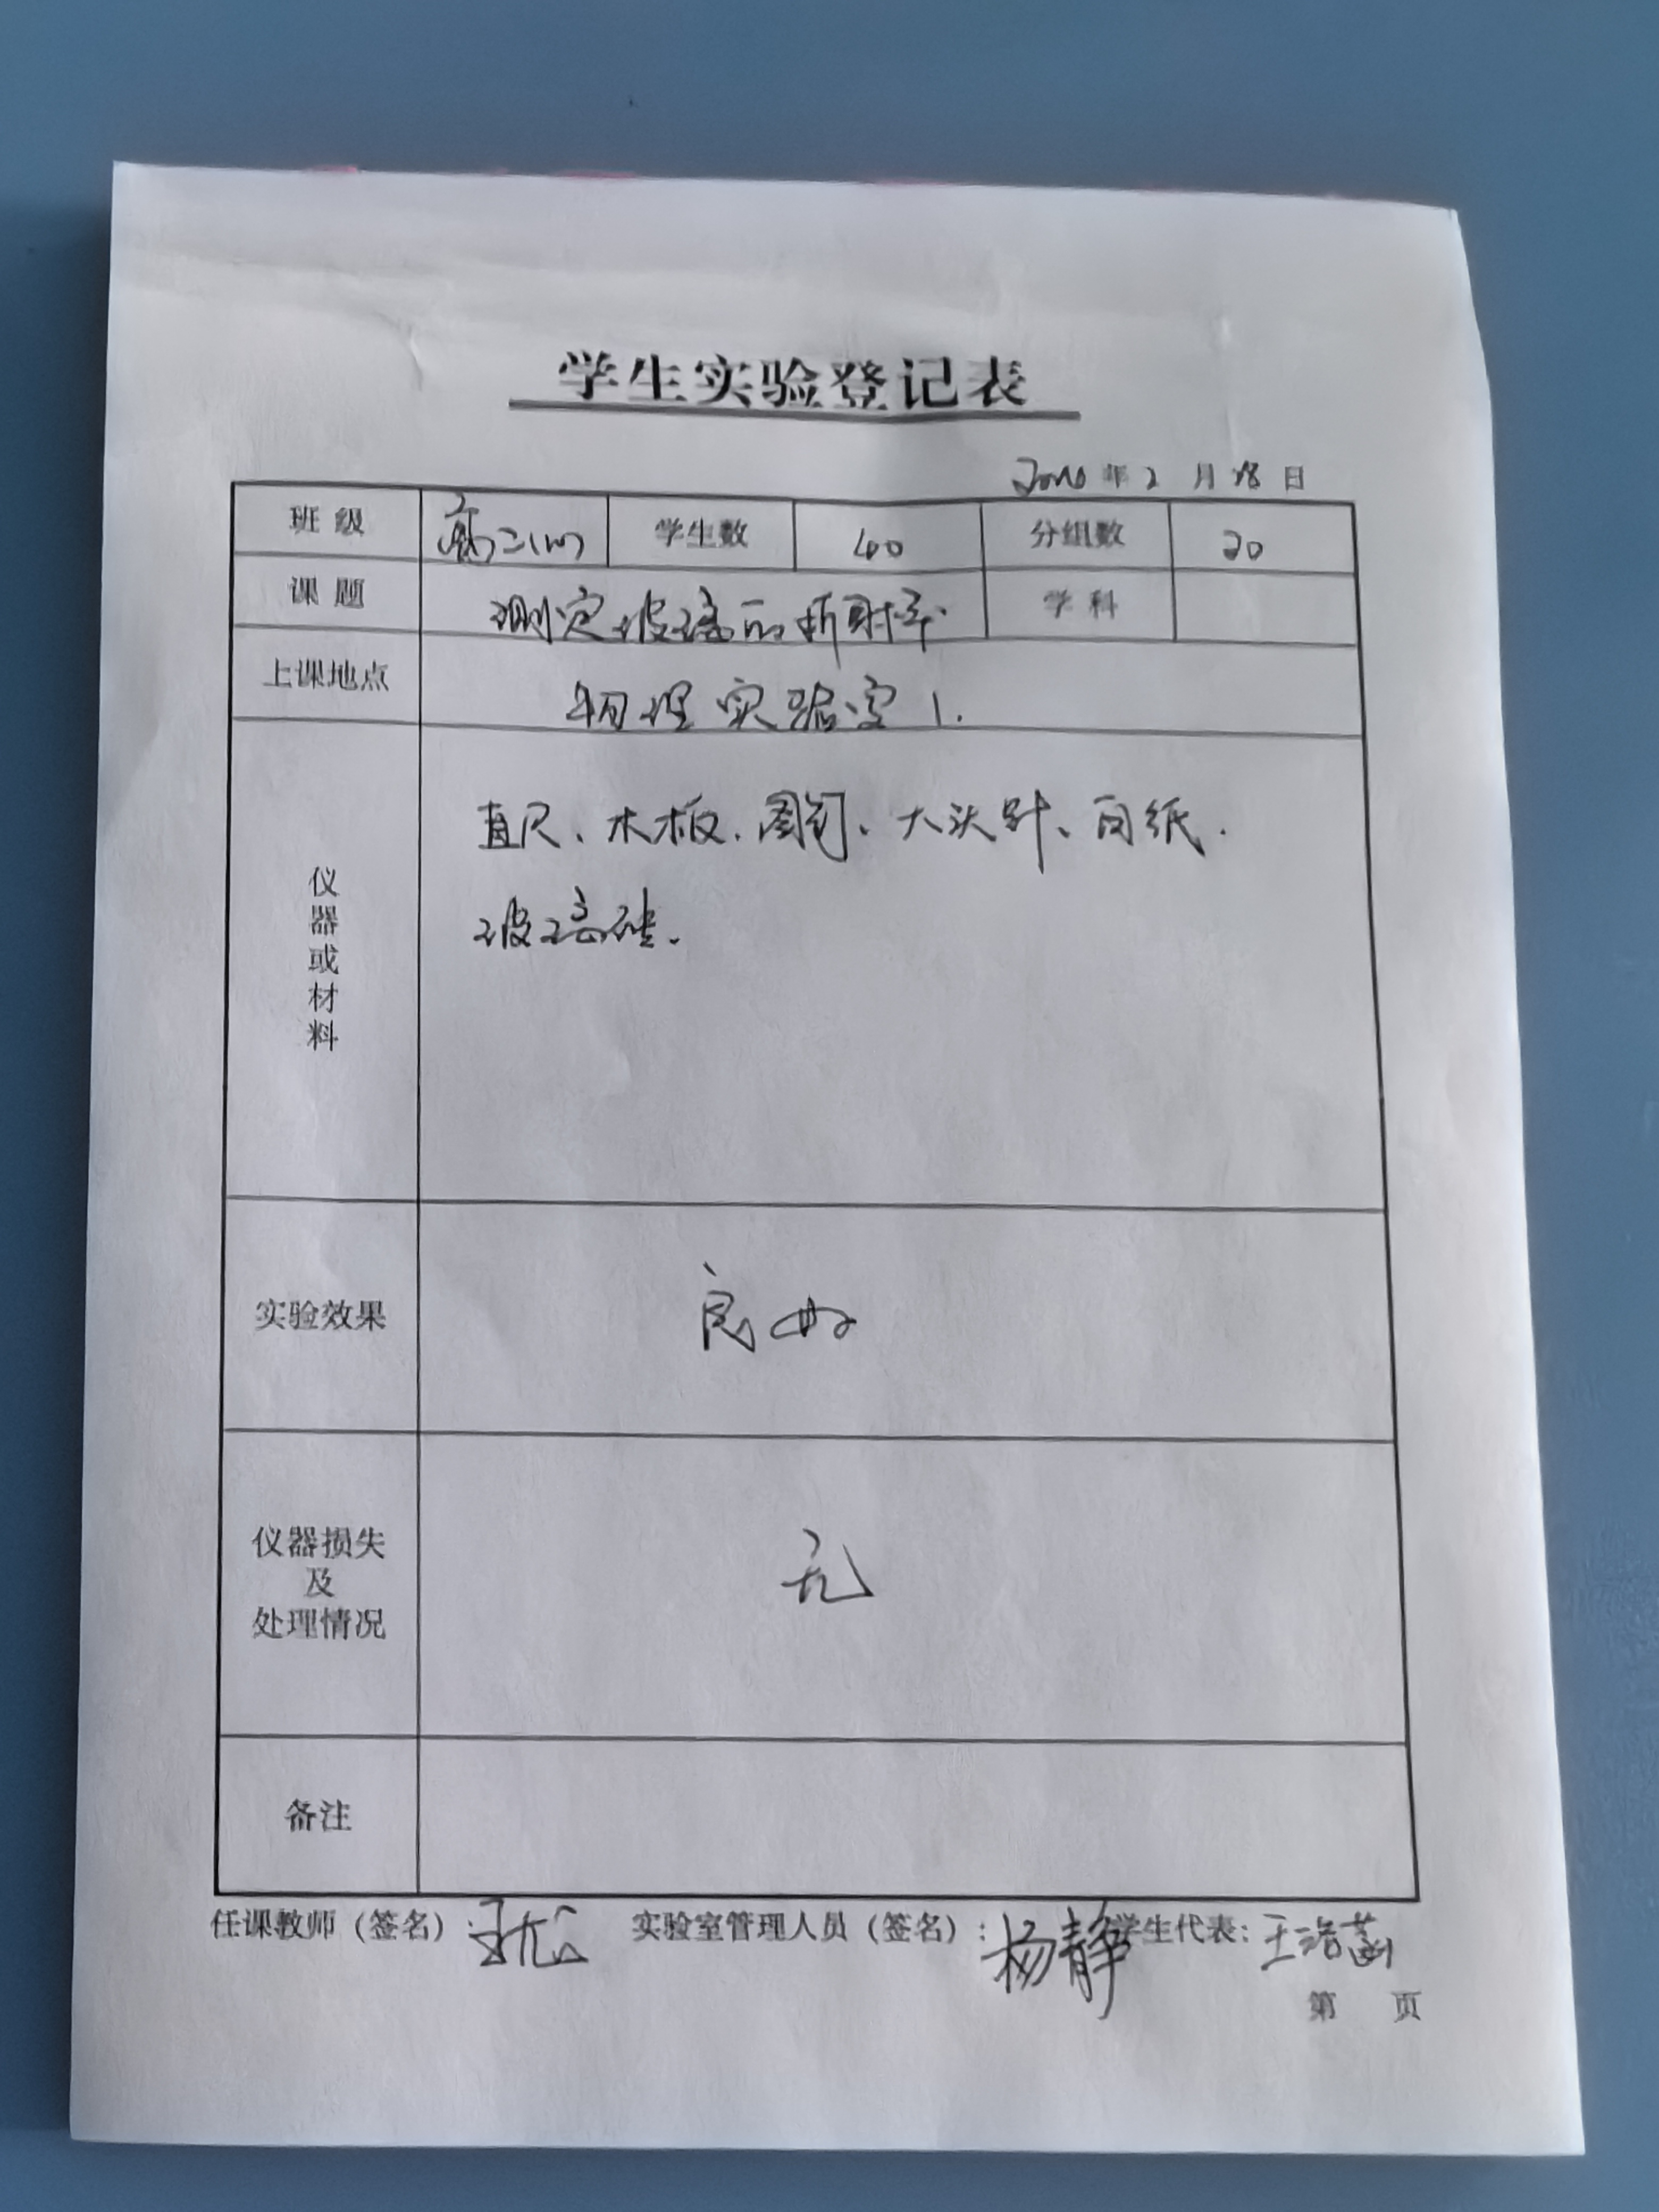 学生实验登记表
年 2 月 28 日
班 级 高二 学生数 40 分组数 20
课 题 测定玻璃的折射率. 学 科
上课地点 物理实验室1.
仪器或材料 直尺、木板、图钉、大头针、白纸.
玻璃砖.
实验效果 良好
仪器损失
及
处理情况
无
备注
任课教师(签名): 实验室管理人员(签名): 杨静 学生代表: 王
第 页